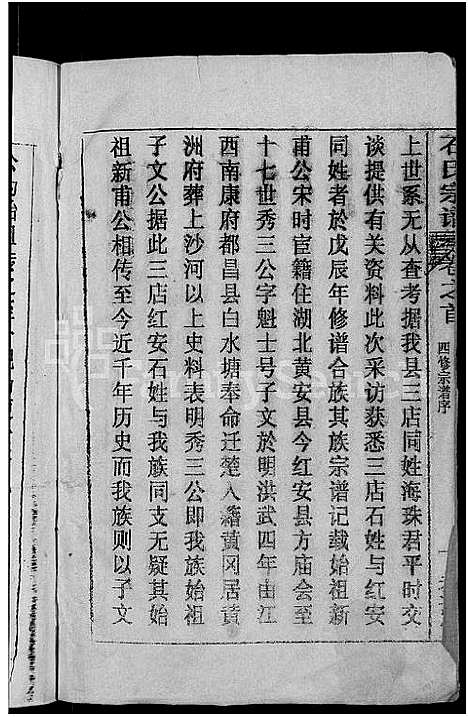 石氏宗谱 卷之首 四修宗谱序
上世系无从查考据我县三店同姓海珠君平时交
谈提供有关资料此次采访获悉三店石姓与红安
同姓者於戊辰年修谱合族其族宗谱记载始祖新
甫公宋时宦籍住湖北黄安县今红安县方庙会至
十七世秀三公字魁士号子文於明洪武四年由江
西南康府都昌县白水塘奉命迁楚入籍黄冈居黄
洲府葬上沙河以上史料表明秀三公即我族始祖
子文公据此三店红安石姓与我族同支无疑其始
祖新甫公相传至今近千年历史而我族则以子文